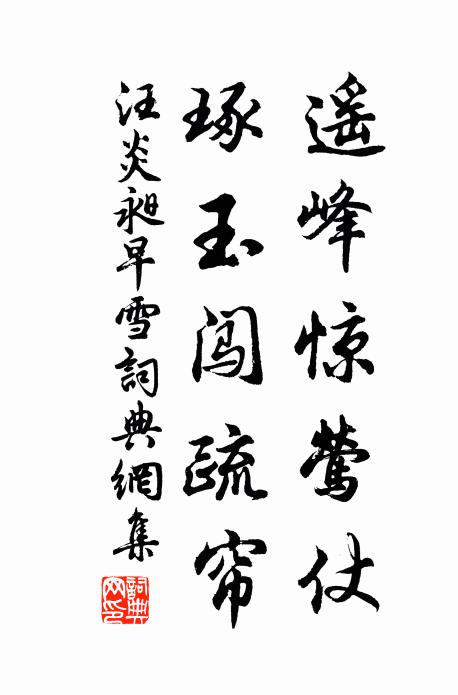 遥峰惊莺仗
琢玉闯疏帘
汪炎昶早雪詞典網集
詞典網印